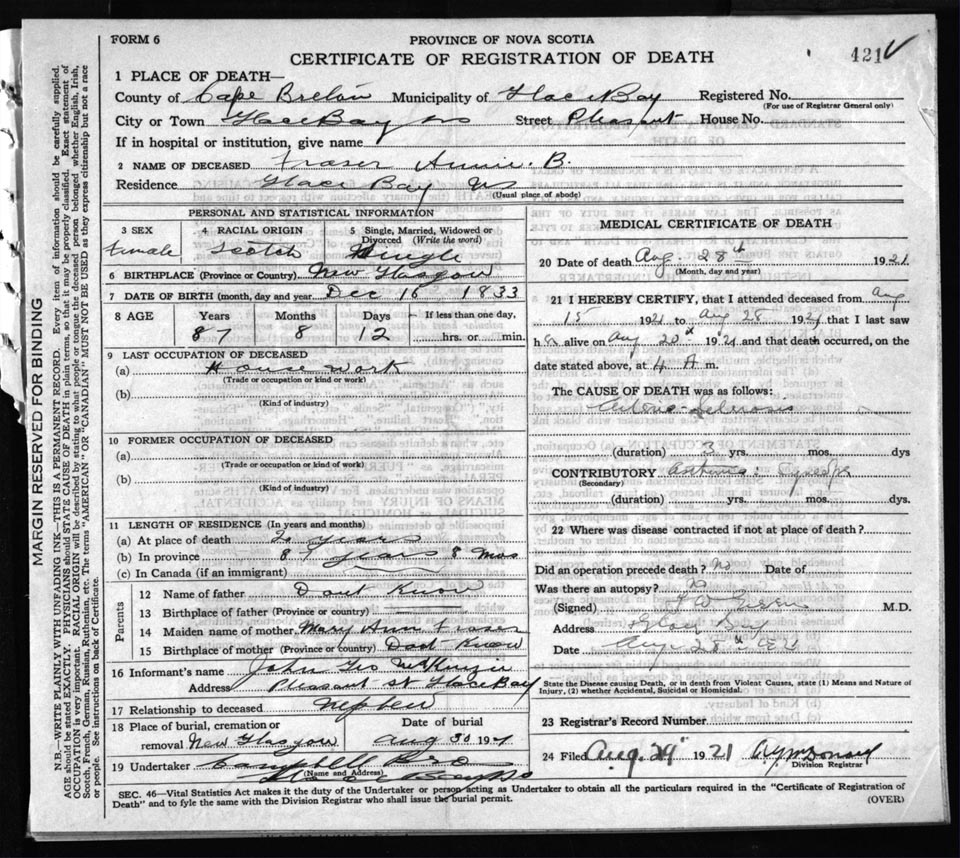 FORM 6
PROVINCE OF NOVA SCOTIA
CERTIFICATE OF REGISTRATION OF DEATH
421
1 PLACE OF DEATH—
County of Cape Breton Municipality of Glace Bay Registered No.
(For use of Registrar General only)
City or Town Glace Bay NS Street Pleasant House No.
If in hospital or institution, give name
2 NAME OF DECEASED Fraser Annie. B.
Residence Glace Bay NS
(Usual place of abode)
PERSONAL AND STATISTICAL INFORMATION
3 SEX Female
4 RACIAL ORIGIN Scotch
5 Single, Married, Widowed or Divorced (Write the word) Single
6 BIRTHPLACE (Province or Country) New Glasgow
7 DATE OF BIRTH (month, day and year Dec 16 1833
8 AGE Years Months Days If less than one day,
87 8 12 hrs. or min.
9 LAST OCCUPATION OF DECEASED
(a) House work
(Trade or occupation or kind or work)
(b)
(Kind of industry)
10 FORMER OCCUPATION OF DECEASED
(a)
(Trade or occupation or kind of work)
(b)
(Kind of industry)
11 LENGTH OF RESIDENCE (In years and months)
(a) At place of death years
(b) In province 87 years 8 Mos
(c) In Canada (if an immigrant)
Parents
12 Name of father Dont Know
13 Birthplace of father (Province or country)
14 Maiden name of mother Mary Ann Fraser
15 Birthplace of mother (Province or country) Dont Know
16 Informant's name John Geo McKenzie
Address Pleasant St Glace Bay
17 Relationship to deceased Nephew
18 Place of burial, cremation or removal New Glasgow
Date of burial Aug 30 1921
19 Undertaker Campbell
(Name and Address)
Glace Bay NS
MEDICAL CERTIFICATE OF DEATH
20 Date of death Aug. 28th 1921
(Month, day and year)
21 I HEREBY CERTIFY, that I attended deceased from Aug
15 1921 to Aug 28 1921 that I last saw
her alive on Aug 20th 1921 and that death occurred, on the
date stated above, at 4 A m.
The CAUSE OF DEATH was as follows:
Arterio-Sclerosis
(duration) 3 yrs. mos. dys
CONTRIBUTORY Asthma:
(Secondary)
(duration) yrs. mos. dys.
22 Where was disease contracted if not at place of death?
Did an operation precede death? No Date of
Was there an autopsy? No
(Signed) M.D.
Address Glace Bay
Date Aug 28th 1921
State the Disease causing Death, or in death from Violent Causes, state (1) Means and Nature of
Injury, (2) whether Accidental, Suicidal or Homicidal.
23 Registrar's Record Number
24 Filed Aug. 29 1921
Division Registrar
SEC. 46—Vital Statistics Act makes it the duty of the Undertaker or person acting as Undertaker to obtain all the particulars required in the "Certificate of Registration of
Death" and to fyle the same with the Division Registrar who shall issue the burial permit.
(OVER)
MARGIN RESERVED FOR BINDING
N.B.—WRITE PLAINLY WITH UNFADING INK—THIS IS A PERMANENT RECORD. Every item of information should be carefully supplied.
AGE should be stated EXACTLY. PHYSICIANS should STATE CAUSE OF DEATH in plain terms, so that it may be properly classified. Exact statement of
OCCUPATION is very important. RACIAL ORIGIN will be described by stating to what people or tongue the deceased person belonged whether English, Irish,
Scotch, French, German, Russian, Ruthenian, etc. The terms "AMERICAN" OR "CANADIAN" MUST NOT BE USED as they express citizenship but not a race
or people. See instructions on back of Certificate.